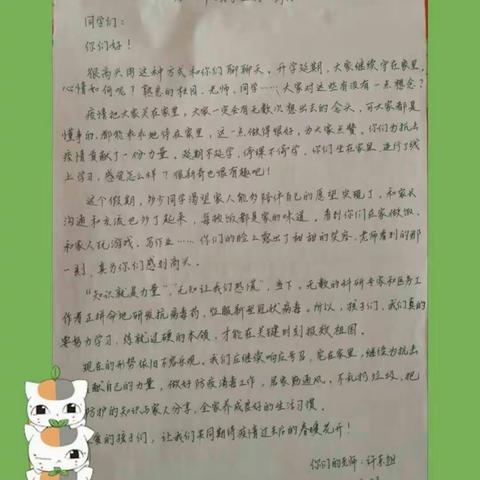 同学们：
你们好！
很高兴用这种方式和你们聊聊天，开学延期，大家继续宅在家里，
心情如何呢？熟悉的校园、老师、同学……大家对这些有没有一点想念？
疫情把大家关在家里，大家一定会有无数次想出去的念头，可大家都是
懂事的，都能乖乖地待在家里，这一点做得很好，为大家点赞，你们为抗击
疫情贡献了一份力量。延期不延学，停课不停学，你们坐在家里进行了线
上学习，感觉怎么样？很新奇也很有趣吧！
这个假期，多少同学渴望家人能多陪伴自己的愿望实现了，和家长
沟通和交流也多了起来，每顿饭都是家的味道。看到你们在家做饭、
和家人玩游戏、写作业……你们的脸上露出了甜甜的笑容，老师看到的那
一刻，真为你们感到高兴。
“知识就是力量”，“无知让我们恐慌”，当下，无数的科研专家和医务工
作者正拼命地研发抗病毒药，征服新型冠状病毒。所以，孩子们，我们真的
要努力学习，练就过硬的本领，才能在关键时刻报效祖国。
现在的形势依旧不容乐观，我们应继续响应号召，宅在家里，继续为抗击
献自己的力量，做好防疫消毒工作，居家勤通风，不乱扔垃圾，把
防护的知识与家人分享，全家养成良好的生活习惯。
爱的孩子们，让我们共同期待疫情过去后的春暖花开！
你们的老师：许